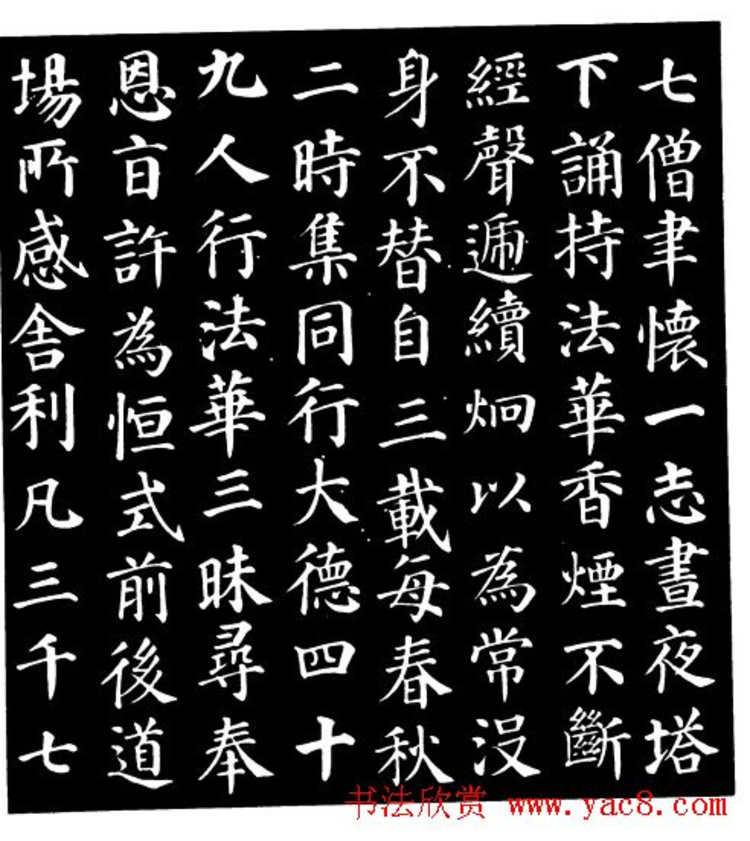 七僧聿懷一志晝夜塔
下誦持法華香煙不斷
經聲遞續炯以為常没
身不替自三載每春秋
二時集同行大德四十
九人行法華三昧尋奉
恩旨許為恒式前後道
場所感舍利凡三千七
书法欣赏 www.yac8.com